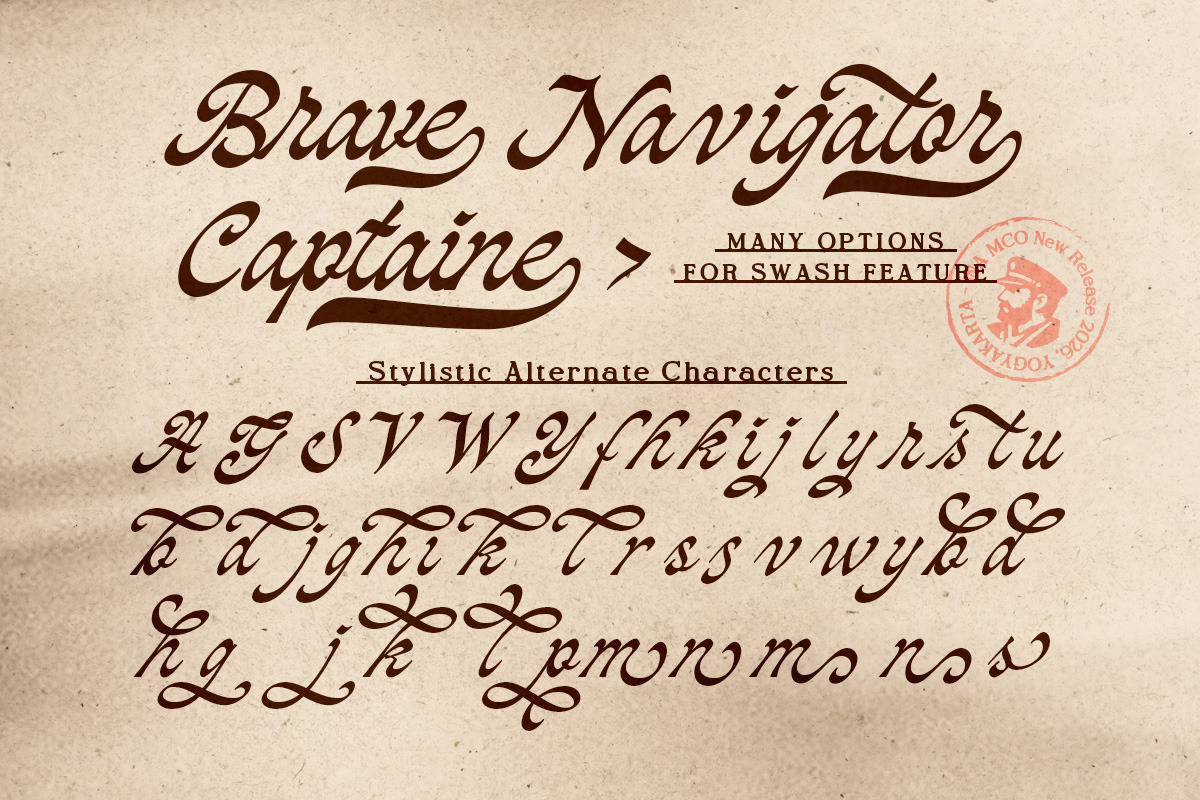 Brave Navigator
Captaine >
MANY OPTIONS
FOR SWASH FEATURE
MCO New Release 2026, YOGYAKARTA -
Stylistic Alternate Characters
A G S V W Y f h k i j l y r s t u
b d j g h i k l r s s v w y b d
h g j k l p m n m n s